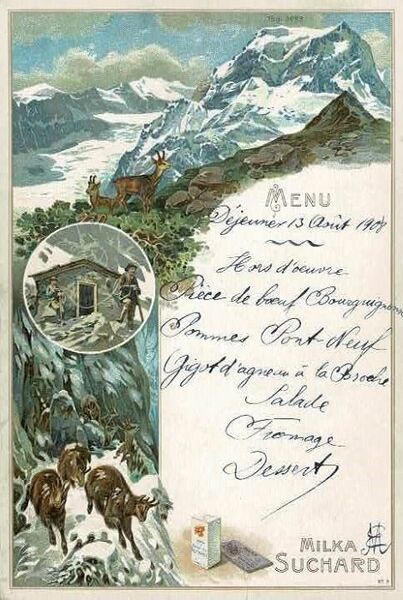 MENU
Déjeuner 13 Août 1908
Hors d'oeuvre
Pièce de bœuf Bourguignonne
Pommes Pont Neuf
Gigot d'agneau à la Broche
Salade
Fromage
Dessert
MILKA
SUCHARD